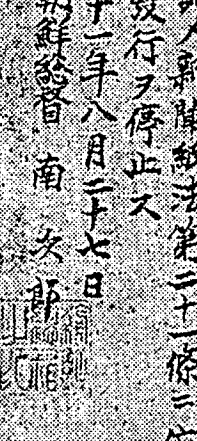 新聞紙法第二十一條ニ
發行ヲ停止ス
十一年八月二十七日
朝鮮總督 南次郎